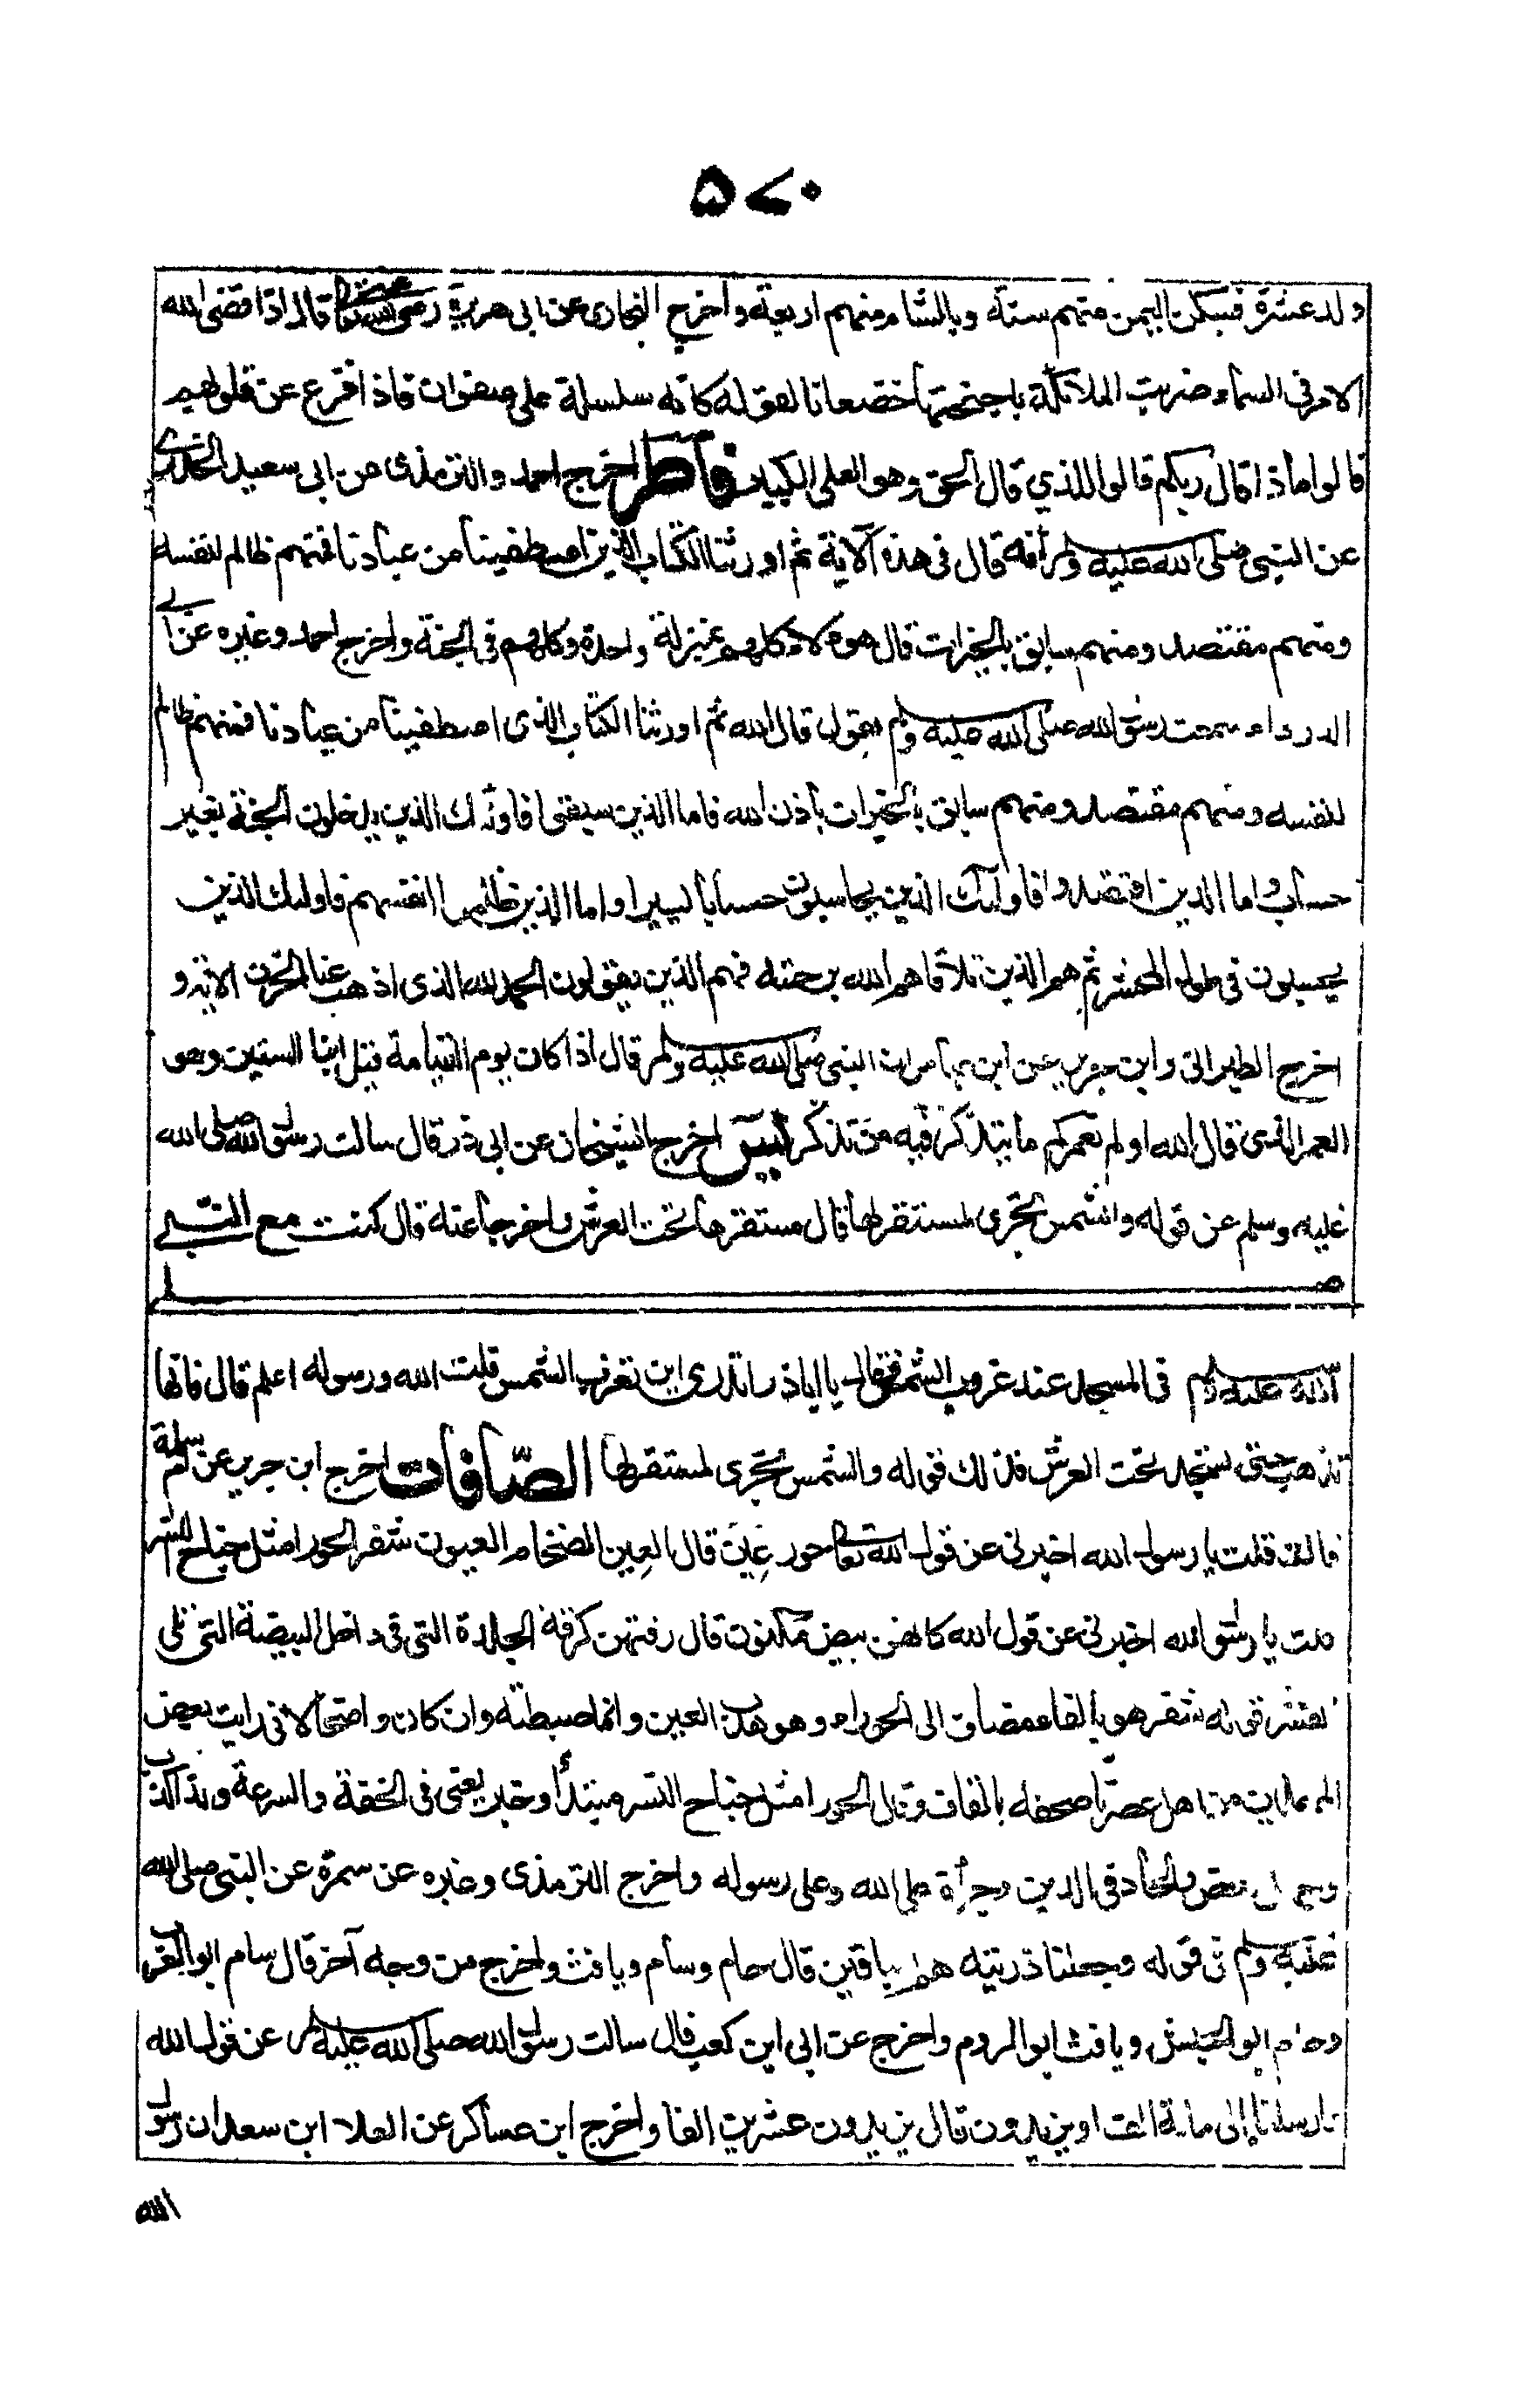 ۵۷۰
ولد عشرة فسكن اليمن منهم ستة وبالشام منهم اربعة واخرج البخارى عن ابى هريرة رضى الله عنه قال اذا قضى الله
الامر فى السماء ضربت الملائكة باجنحتها خضعانا لقوله كانه سلسلة على صفوان فاذا فزع عن قلوبهم
قالوا ماذا قال ربكم قالوا للذي قال الحق وهو العلى الكبير فاطر اخرج احمد والترمذى عن ابى سعيد الخدرى
عن النبى صلى الله عليه وسلم انه قال فى هذه الآية ثم اورثنا الكتاب الذين اصطفينا من عبادنا فمنهم ظالم لنفسه
ومنهم مقتصد ومنهم سابق بالخيرات قال هومؤلاء كلهم بمنزلة واحدة وكلهم فى الجنة واخرج احمد وغيره عن ابى
الدرداء سمعت رسول الله صلى الله عليه وسلم يقول قال الله ثم اورثنا الكتاب الذى اصطفينا من عبادنا فمنهم ظالم
لنفسه ومنهم مقتصد ومنهم سابق بالخيرات باذن الله فاما الذين سبقوا فاولئك الذين يدخلون الجنة بغير
حساب واما الذين اقتصدوا فاولئك الذين يحاسبون حسابا يسيرا واما الذين ظلموا انفسهم فاولئك الذين
يحبسون فى طول المحشر ثم هم الذين تلافاهم الله برحمته فهم الذين يقولون الحمد لله الذى اذهب عنا الحزن الاية و
اخرج الطبرانى وابن جرير عن ابن عباس ان النبى صلى الله عليه وسلم قال اذا كان يوم القيامة قيل ابنا الستين وهو
العمر الذى قال الله اولم نعمركم ما يتذكر فيه من تذكر يس اخرج الشيخان عن ابى ذر قال سالت رسول الله صلى الله
عليه وسلم عن قوله والشمس تجرى لمستقر لها قال مستقرها تحت العرش واخرجا عنه قال كنت مع النبى
صلى
الله عليه وسلم فى المسجد عند غروب الشمس فقال يا اباذر اتدرى اين تغرب الشمس قلت الله ورسوله اعلم قال فانها
تذهب حتى تسجد تحت العرش فذلك قوله والشمس تجرى لمستقر لها الصافات اخرج ابن جرير عن ام سلمة
قالت قلت يا رسول الله اخبرنى عن قول الله تعالى حور عِين قال العِين الضخام العيون شفر الحورا مثل جناح النسر
قلت يا رسول الله اخبرنى عن قول الله كانهن بيض مكنون قال رقتهن كرقة الجلدة التى فى داخل البيضة التى تلى
القشر قوله شفر هو بالفا مضاف الى الحوراء وهو هدب العين وانما ضبطته وان كان واضحا لانى رايت بعض
المهملين من اهل عصرنا صحفه بالقاف وقال الحورا مثل جناح النسر مبتدأ وخبر يعنى فى الخفة والسرعة وهذا كذب
وجهل محض والحاد فى الدين وجرأة على الله وعلى رسوله واخرج الترمذى وغيره عن سمرة عن النبى صلى الله
عليه وسلم فى قوله وجعلنا ذريته هم الباقين قال حام وسام ويافث واخرج من وجه آخر قال سام ابو العرب
وحام ابو الحبش ويافث ابو الروم واخرج عن ابى ابن كعب قال سالت رسول الله صلى الله عليه وسلم عن قول الله
وارسلناه إلى مائة الف او يزيدون قال يزيدون عشرين الفا واخرج ابن عساكر عن العلا ابن سعد ان رسول
الله